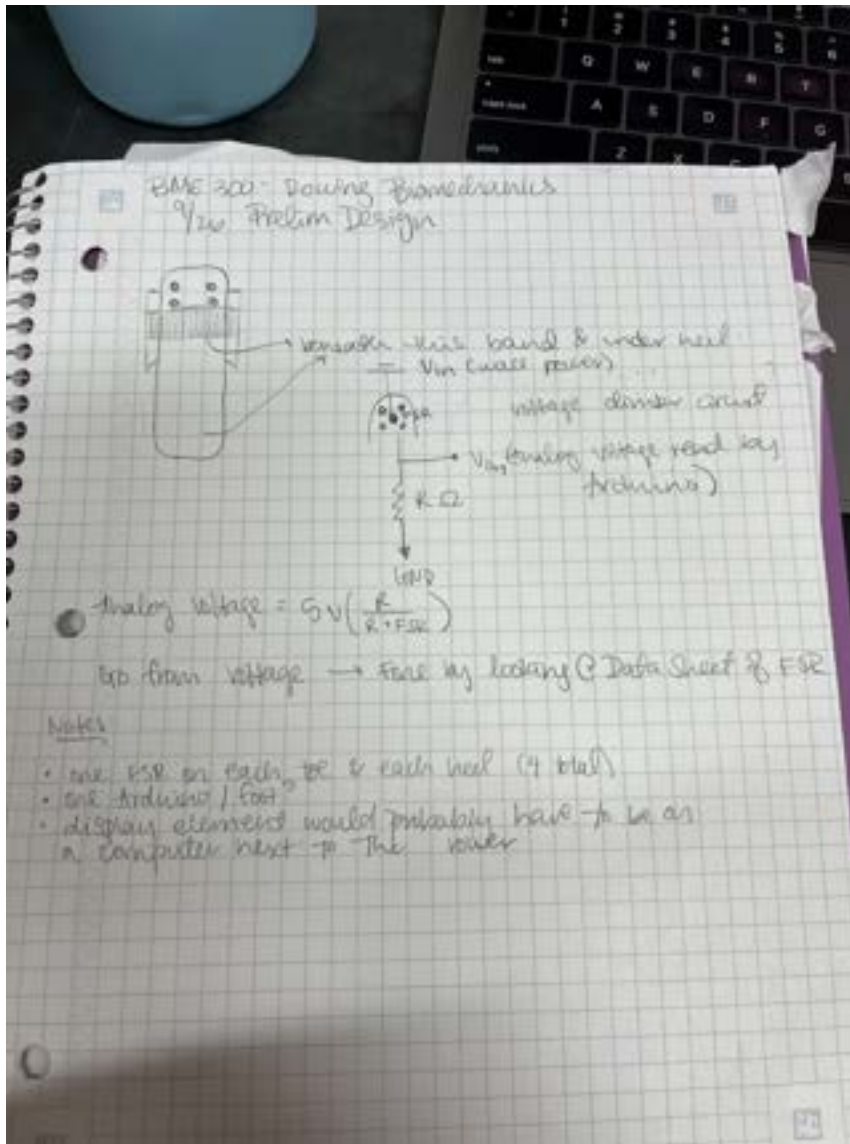 BME 300 - Rowing Biomechanics
9/26 Prelim Design
beneath this band & under heel
Vin (wall power)
voltage divider circuit
(analog voltage read by
Arduino)
R Ω
GND
Analog Voltage = 5V(R/(R+FSR))
Go from voltage → Force by looking @ Data Sheet of FSR
Notes
• one FSR on each toe & each heel (4 total)
• one Arduino / foot?
• display element would probably have to be on
a computer next to the rower
tab
Q
W
E
R
T
caps lock
A
S
D
F
G
shift
Z
X
C
1
2
3
4
5
6